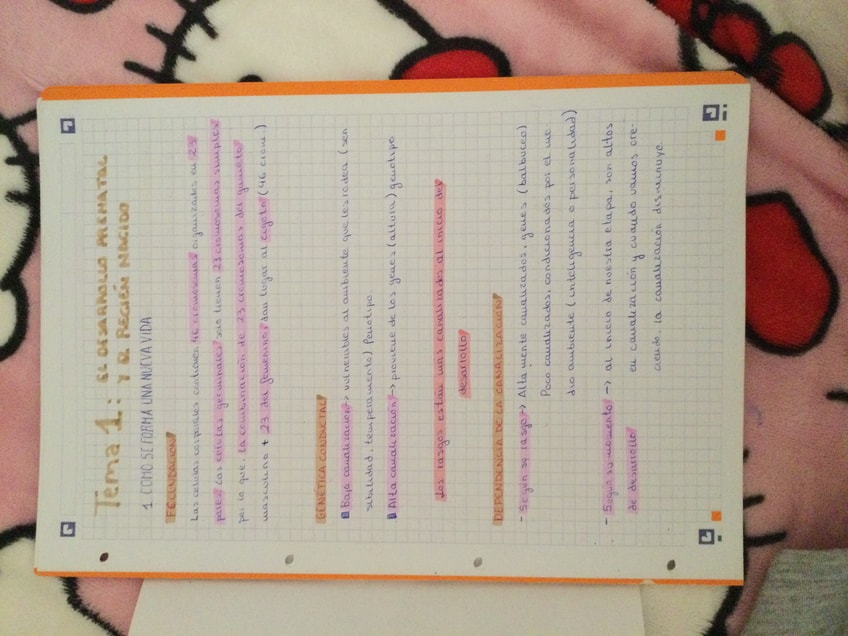 Tema 1: EL DESARROLLO PRENATAL
Y EL RECIÉN NACIDO
1. COMO SE FORMA UNA NUEVA VIDA
FECUNDACIÓN
Las celulas corporales contienen 46 cromosomas organizados en 23
pares. Las celulas germinales solo tienen 23 cromosomas simples
por lo que, la combinación de 23 cromosomas del gameto
masculino + 23 del femenino, dan lugar al cigoto (46 crom.)
GENÉTICA CONDUCTUAL
Baja canalización → vulnerables al ambiente que les rodea (sen
sibilidad, temperamento) Fenotipo
Alta canalización → proviene de los genes (altura) genotipo
Los rasgos estan más canalizados al inicio del
desarrollo
DEPENDENCIA DE LA CANALIZACIÓN
- Según su rasgo → Altamente canalizados, genes (balbuceo)
Poco canalizados, condicionados por el me
dio ambiente (inteligencia o personalidad)
- Según su momento → al inicio de nuestra etapa, son altos
de desarrollo en canalización y cuando vamos cre-
ciendo, la canalización disminuye.